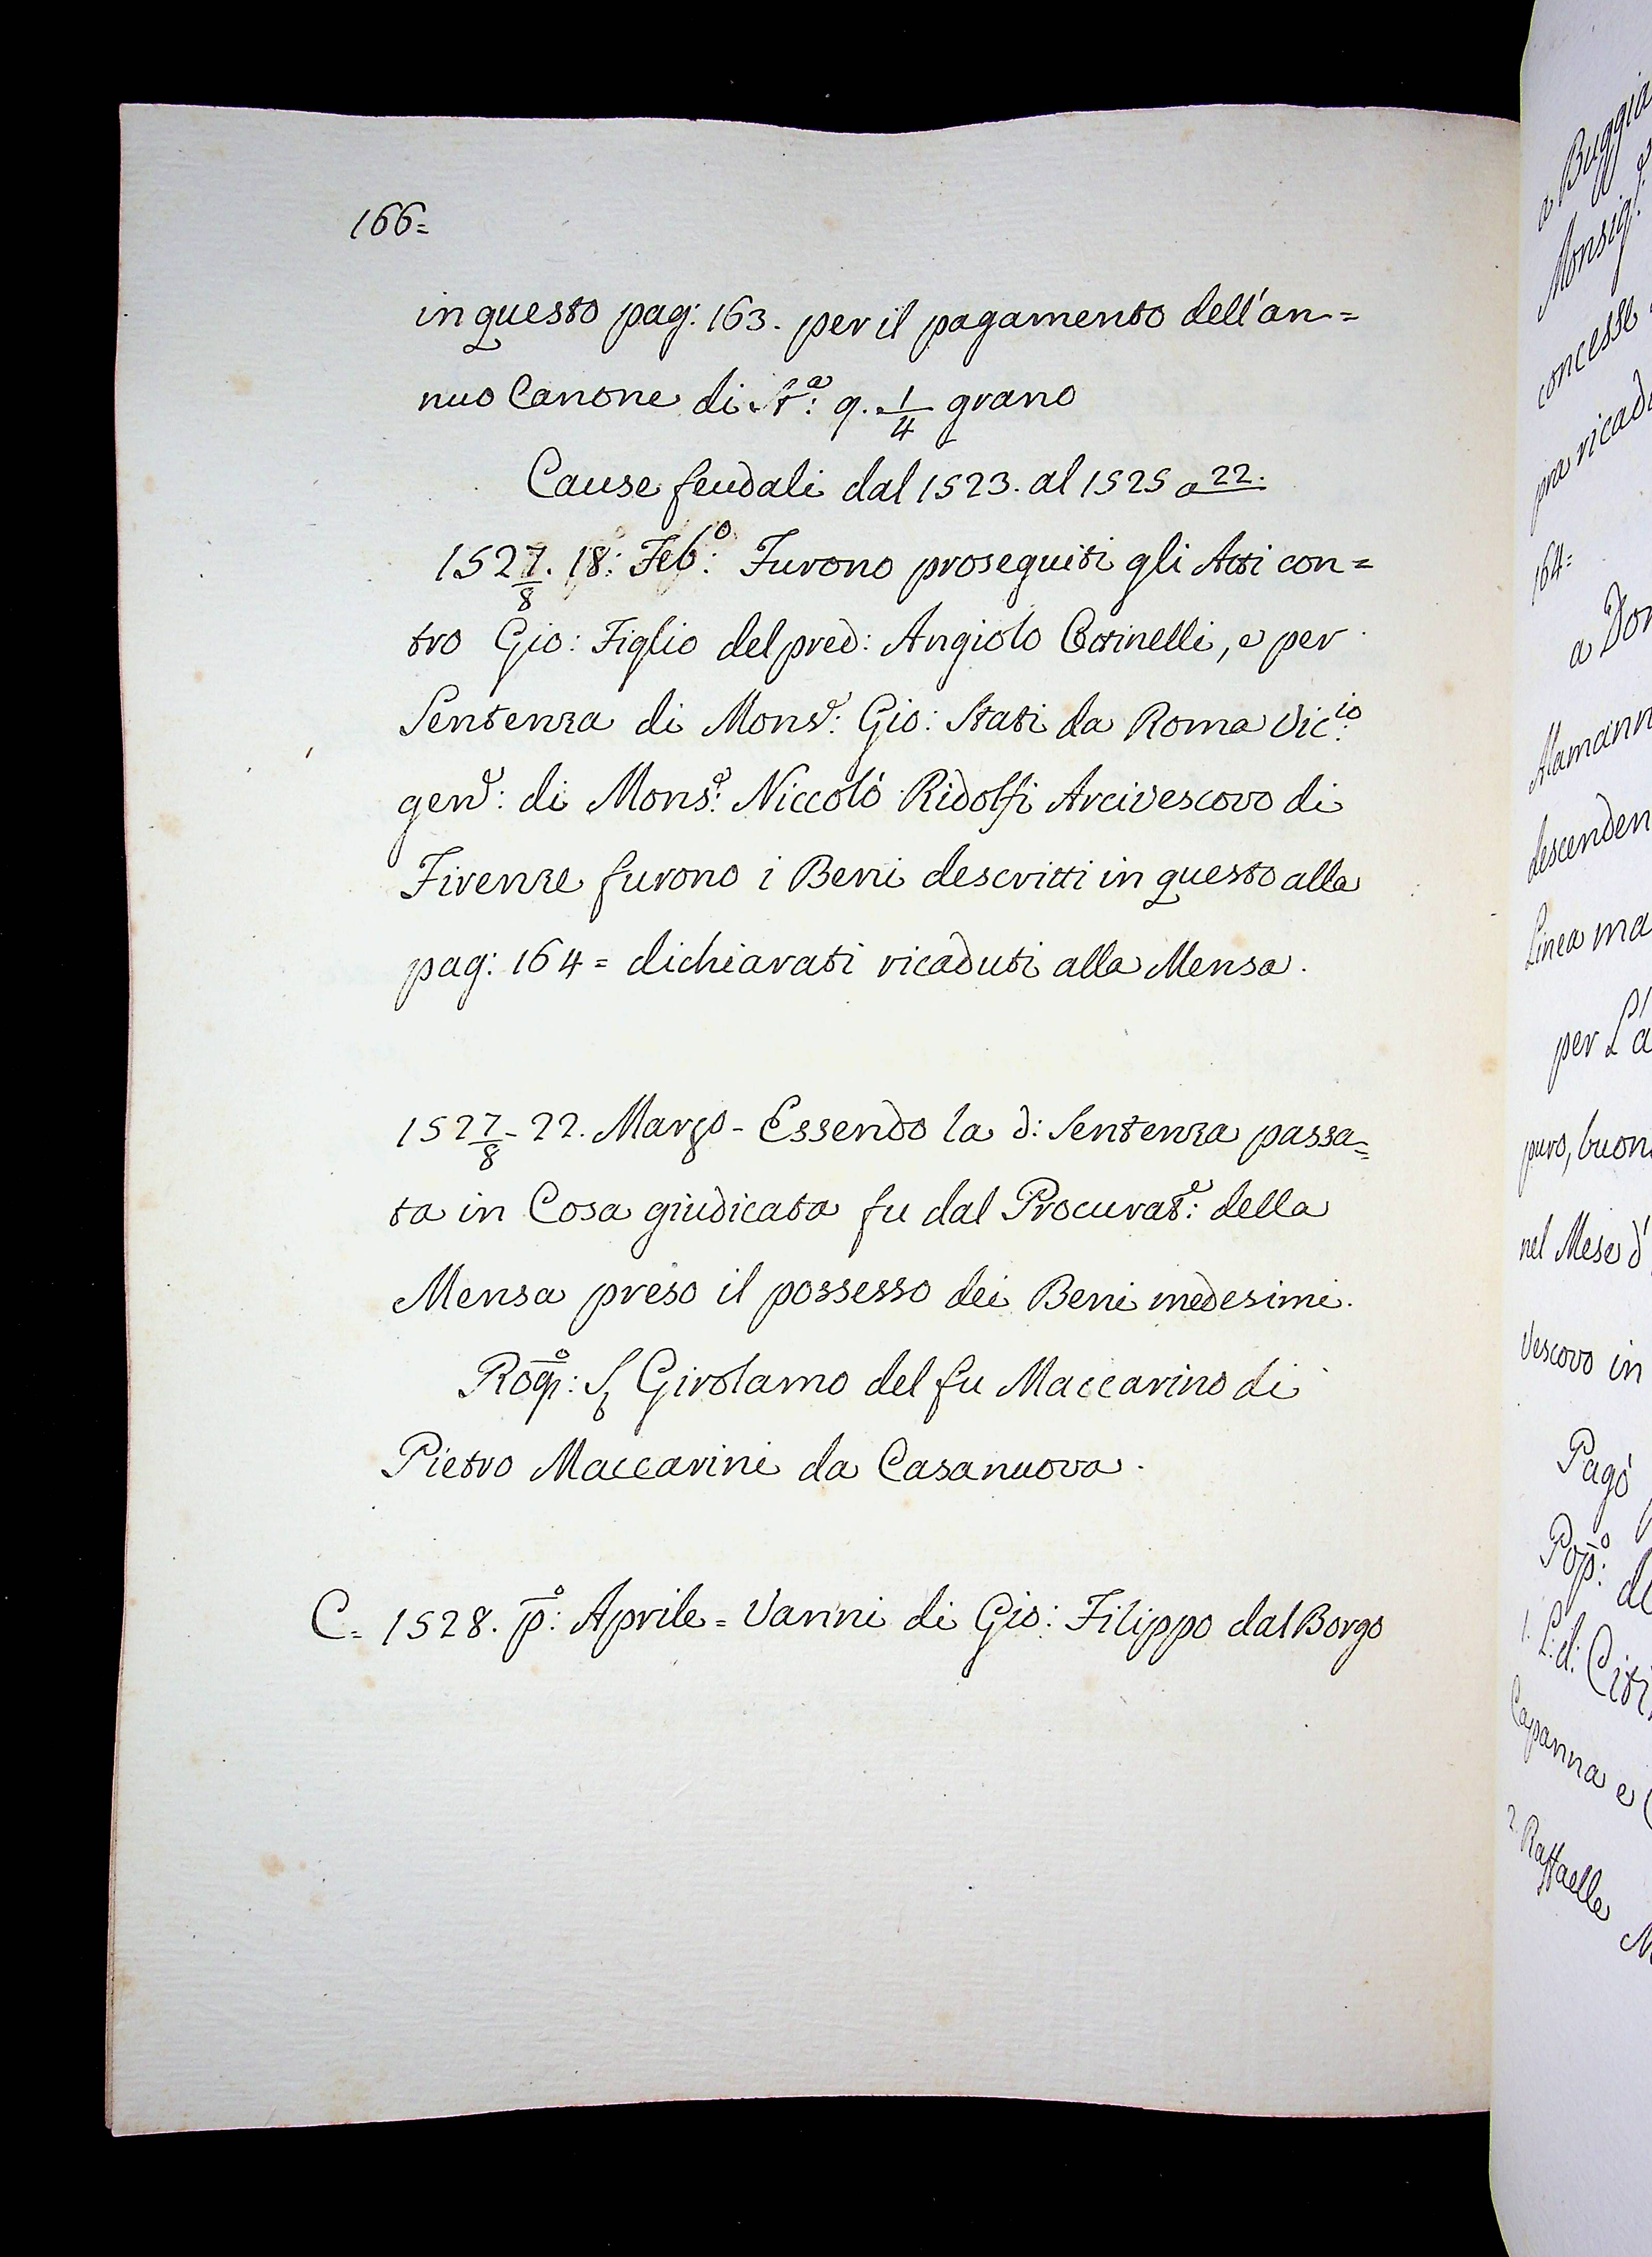 166=
in questo pag: 163. per il pagamento dell'an=
nuo Canone di St.ª: 9. 1/4 grano
Cause feudali dal 1523. al 1525 a 22.
1527/8. 18: Febº: Furono proseguiti gli Atti con=
tro Gio: Figlio del pred: Angiolo Cattinelli, e per
Sentenza di Monsr: Gio: Stati da Roma Vicio:
genr: di Monsr: Niccolò Ridolfi Arcivescovo di
Firenze furono i Beni descritti in questo alla
pag: 164= dichiarati ricaduti alla Mensa.
1527/8- 22. Marzo- Essendo la d: Sentenza passa=
ta in Cosa giudicata fu dal Procurate: della
Mensa preso il possesso dei Beni medesimi.
Rogº: S Girolamo del fu Maccarino di
Pietro Maccarini da Casanuova.
C= 1528. pº: Aprile= Vanni di Gio: Filippo dal Borgo
a Buggia
Monsig:
concesse
pra ricad
164=
a Don
Alamann
descenden
Linea ma
per La
puro, buon
nel Mese d'
Vescovo in
Pagò
Popº: de
1. L: d: Citi
Capanna e
2. Raffaelle M